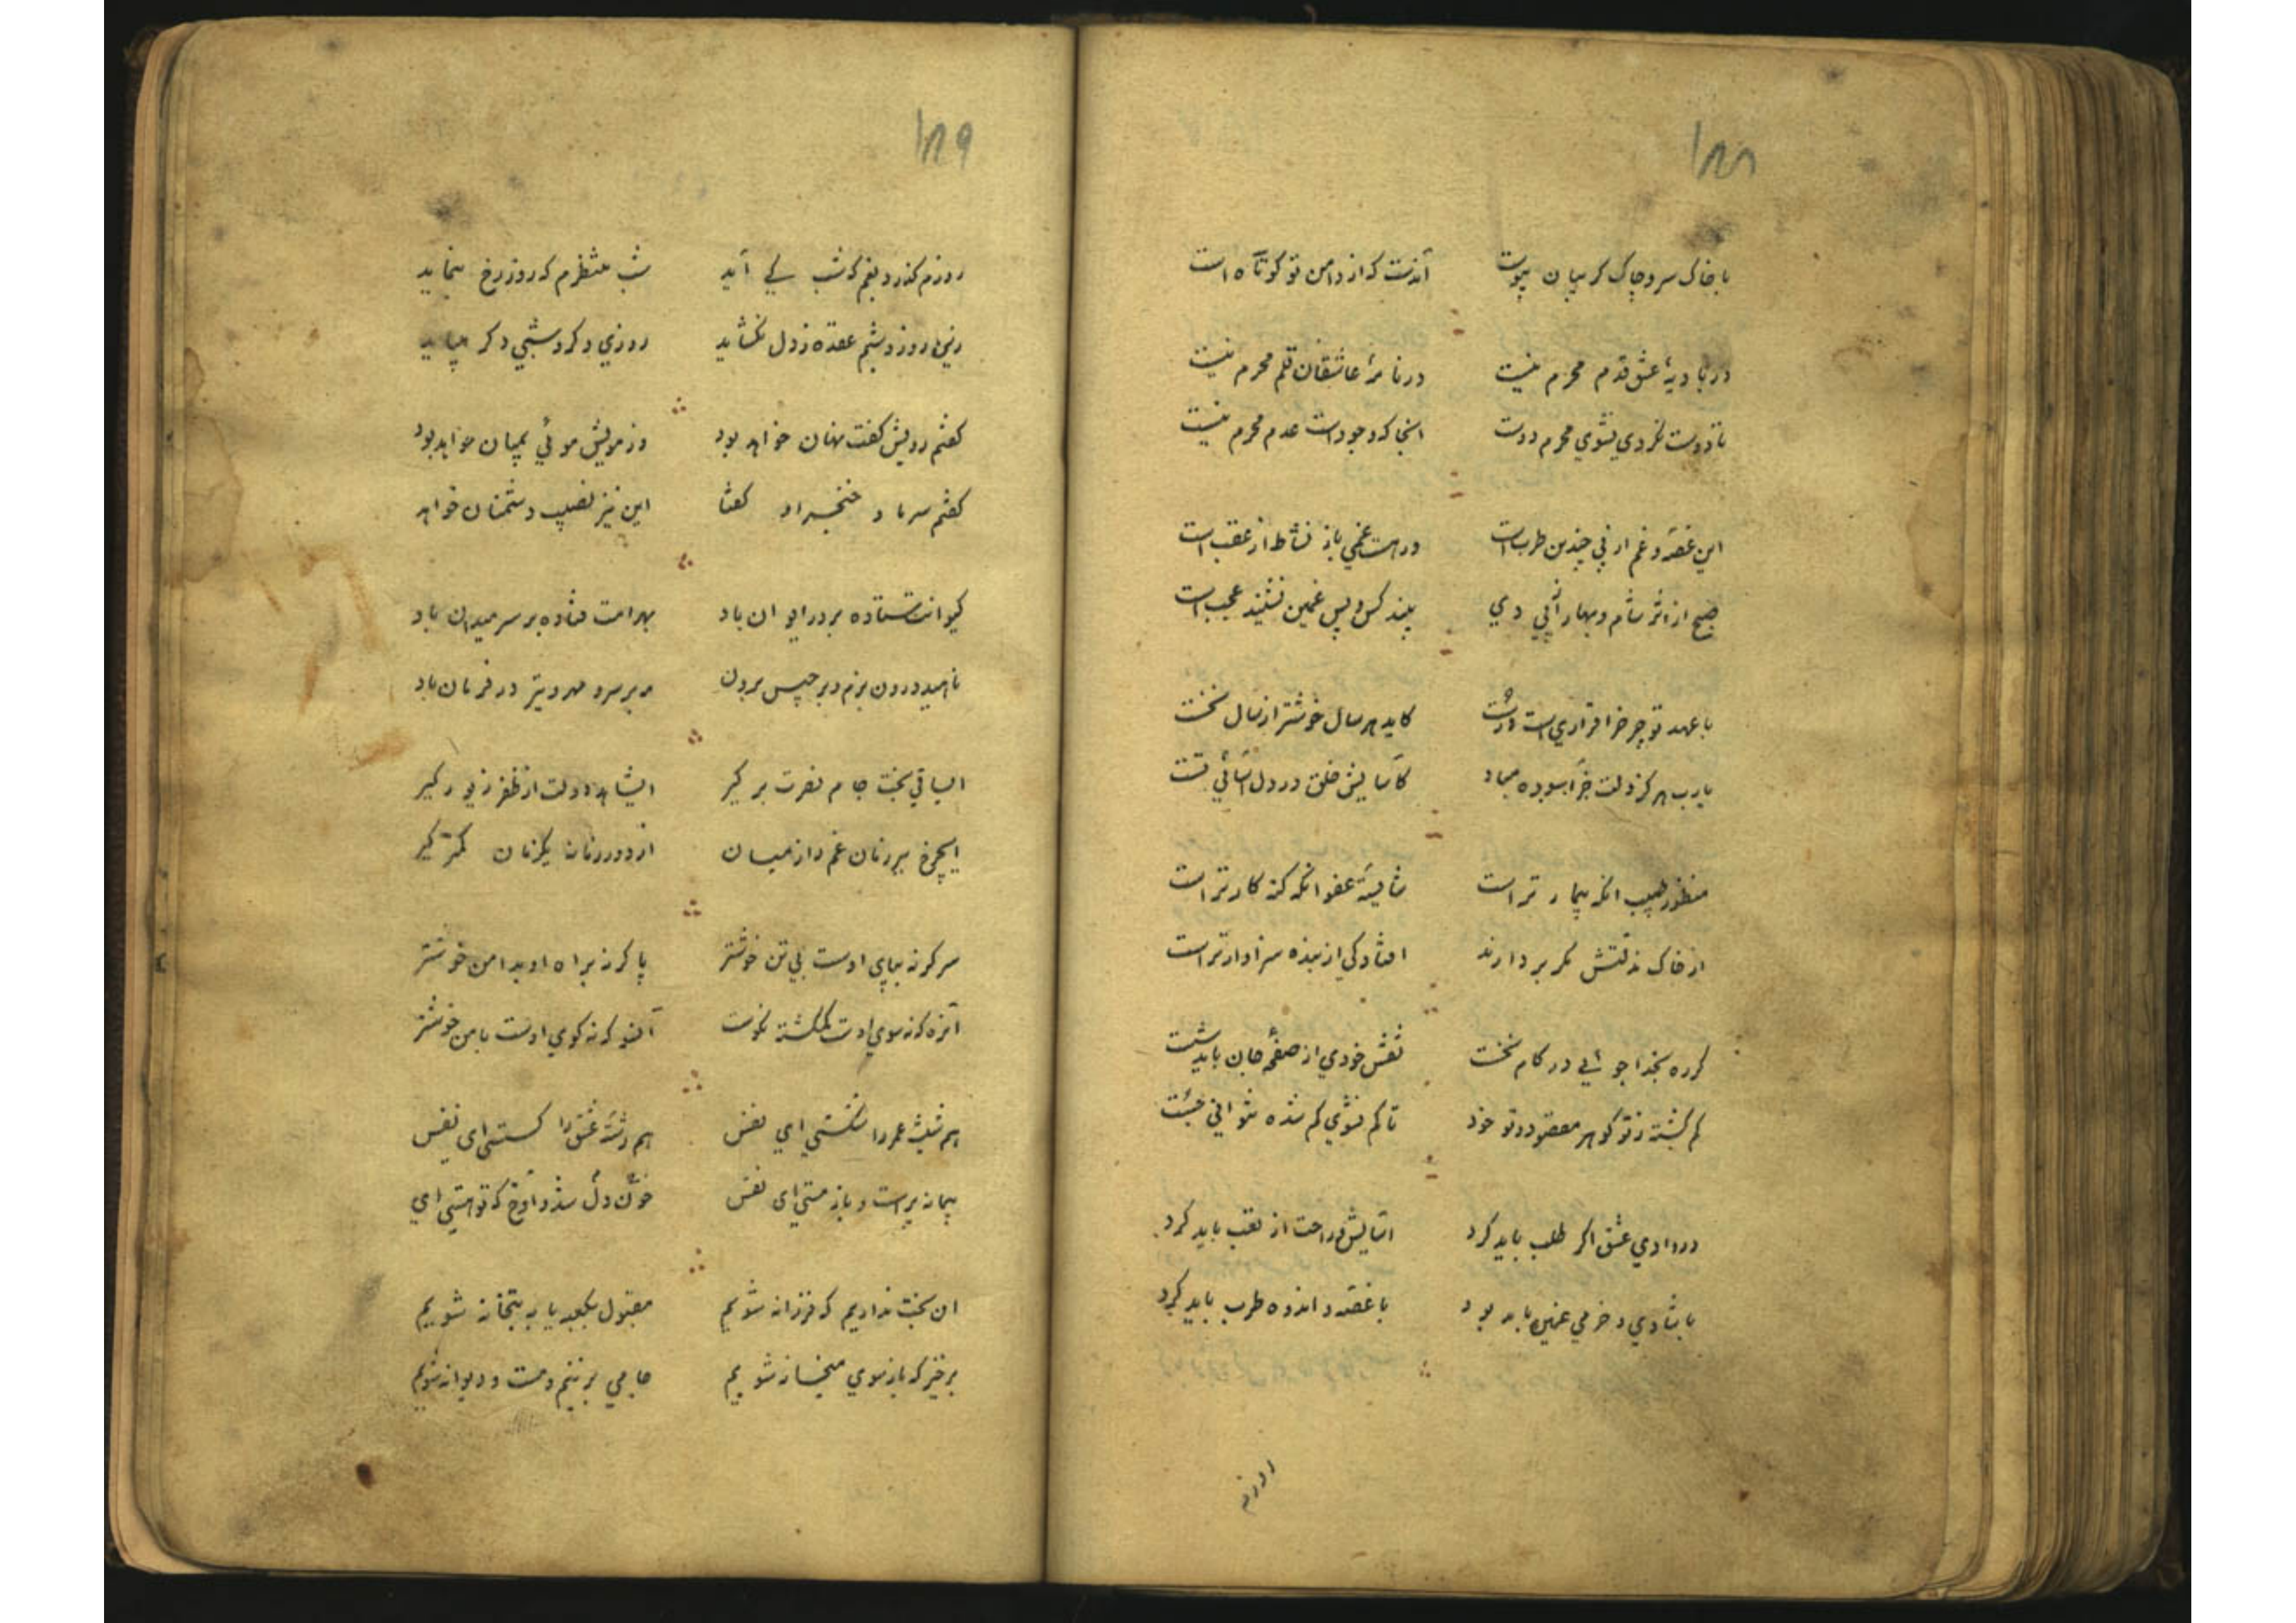 ۱۸۸
با خاک سر و چاک کریبان پیوست آندست که از دامن تو کوتاه است
در بادیهٔ عشق قدم محرم نیست در نامهٔ عاشقان قلم محرم نیست
تا دوست نکردی نشوی محرم دوست انجا که وجود است عدم محرم نیست
این غصه و غم از پی چندین طرب است ور هست غمی باز نشاط از عقب است
صبح از اثر شام و بهار از پی دی بیند کس و پس غمین نشیند عجب است
با عهد تو چرخ را قراری است درست کاید هر سال خوشتر از سال نخست
یارب هرکز دلت جز آسوده مباد کاسایش خلق در دل آسائی تست
منظور طبیب آنکه بیمار تر است شایستهٔ عفو آنکه کنه کار تر است
از خاک مذلتش مکر بردارند افتادکی از بنده سزاوار تر است
کر ره بخدا جوئی در کام نخست نقش خودی از صفحهٔ جان باید شست
کم کشته ز تو کوهر مقصود و تو خود تا کم نشوی کم شده نتوانی جست
در وادی عشق اکر طلب باید کرد آسایش و راحت از تعب باید کرد
با شادی و خرمی غمین باید بود با غصه و اندوه طرب باید کرد
روزم
۱۸۹
روزم کذرد بغم که شب کی آید شب منتظرم که روز رخ بنماید
زین روز و شبم عقده ز دل نکشاید روزی دکر و شبی دکر میباید
کفتم رویش کفت نهان خواهد بود وز مویش موئی بمیان خواهد بود
کفتم سر ما و خنجر او کفتا این نیز نصیب دشمنان خواهد
کیوانت ستاده بر در ایوان باد بهرامت فتاده بر سر میدان باد
ناهید درون بزم و برجیس برون مه بر سر و مهر و تیر در فرمان باد
ایساقی بخت جام نصرت بر کیر ایشاهد دولت از ظفر زیور کیر
ایچرخ ببر زنان غم را ز میان از دور زمانه یکزمان کمتر کیر
سر کر نه بپای اوست بی تن خوشتر پا کر نه براه او بدامن خوشتر
آنره که نه سوی اوست کم کشته نکوست آنسو که نه کوی اوست با من خوشتر
هم شیشهٔ عمر را شکستی ای نفس هم رشتهٔ عشق را کسستی ای نفس
پیمانه پرست و باز مستی ای نفس خون دل شد و آوخ که تو هستی ای
ان بخت نداریم که فرزانه شویم مقبول بکعبه یا به بتخانه شویم
برخیز که باز سوی میخانه شویم جامی بزنیم و مست و دیوانه شویم